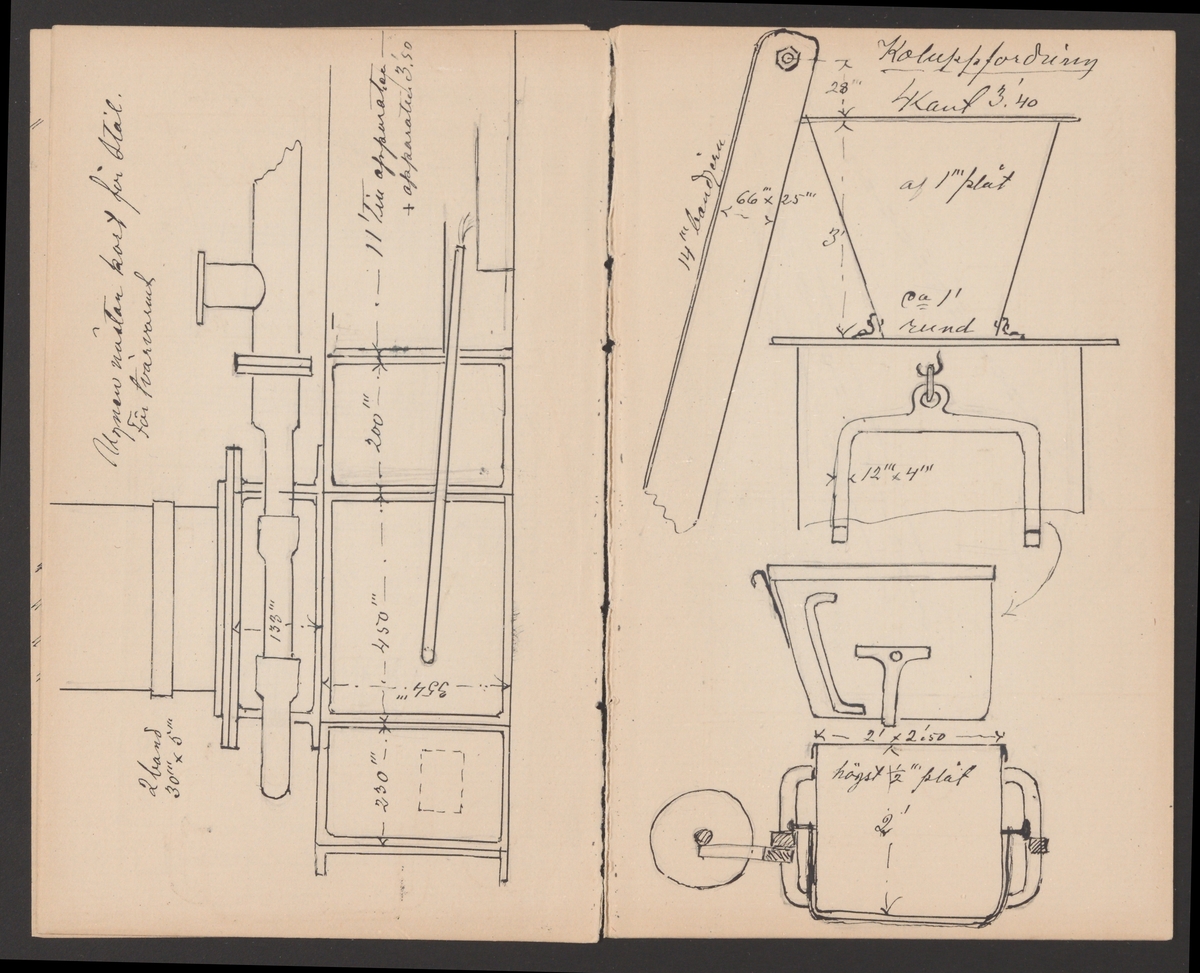 Ugnen nästan kort för Stål.
För tvärvarmt
11' Till apparaten
+ apparaten 3,'50
200'''
450'''
138'''
354'''
230'''
2 band
30''' x 5'''
Koluppfordring
4Kant 3.'40
28'''
14''' bandjern
66''' x 25'''
af 1''' plåt
3'
ca 1'
rund
12''' x 4'''
2' x 2'.50
högst 1/2''' plåt
2'